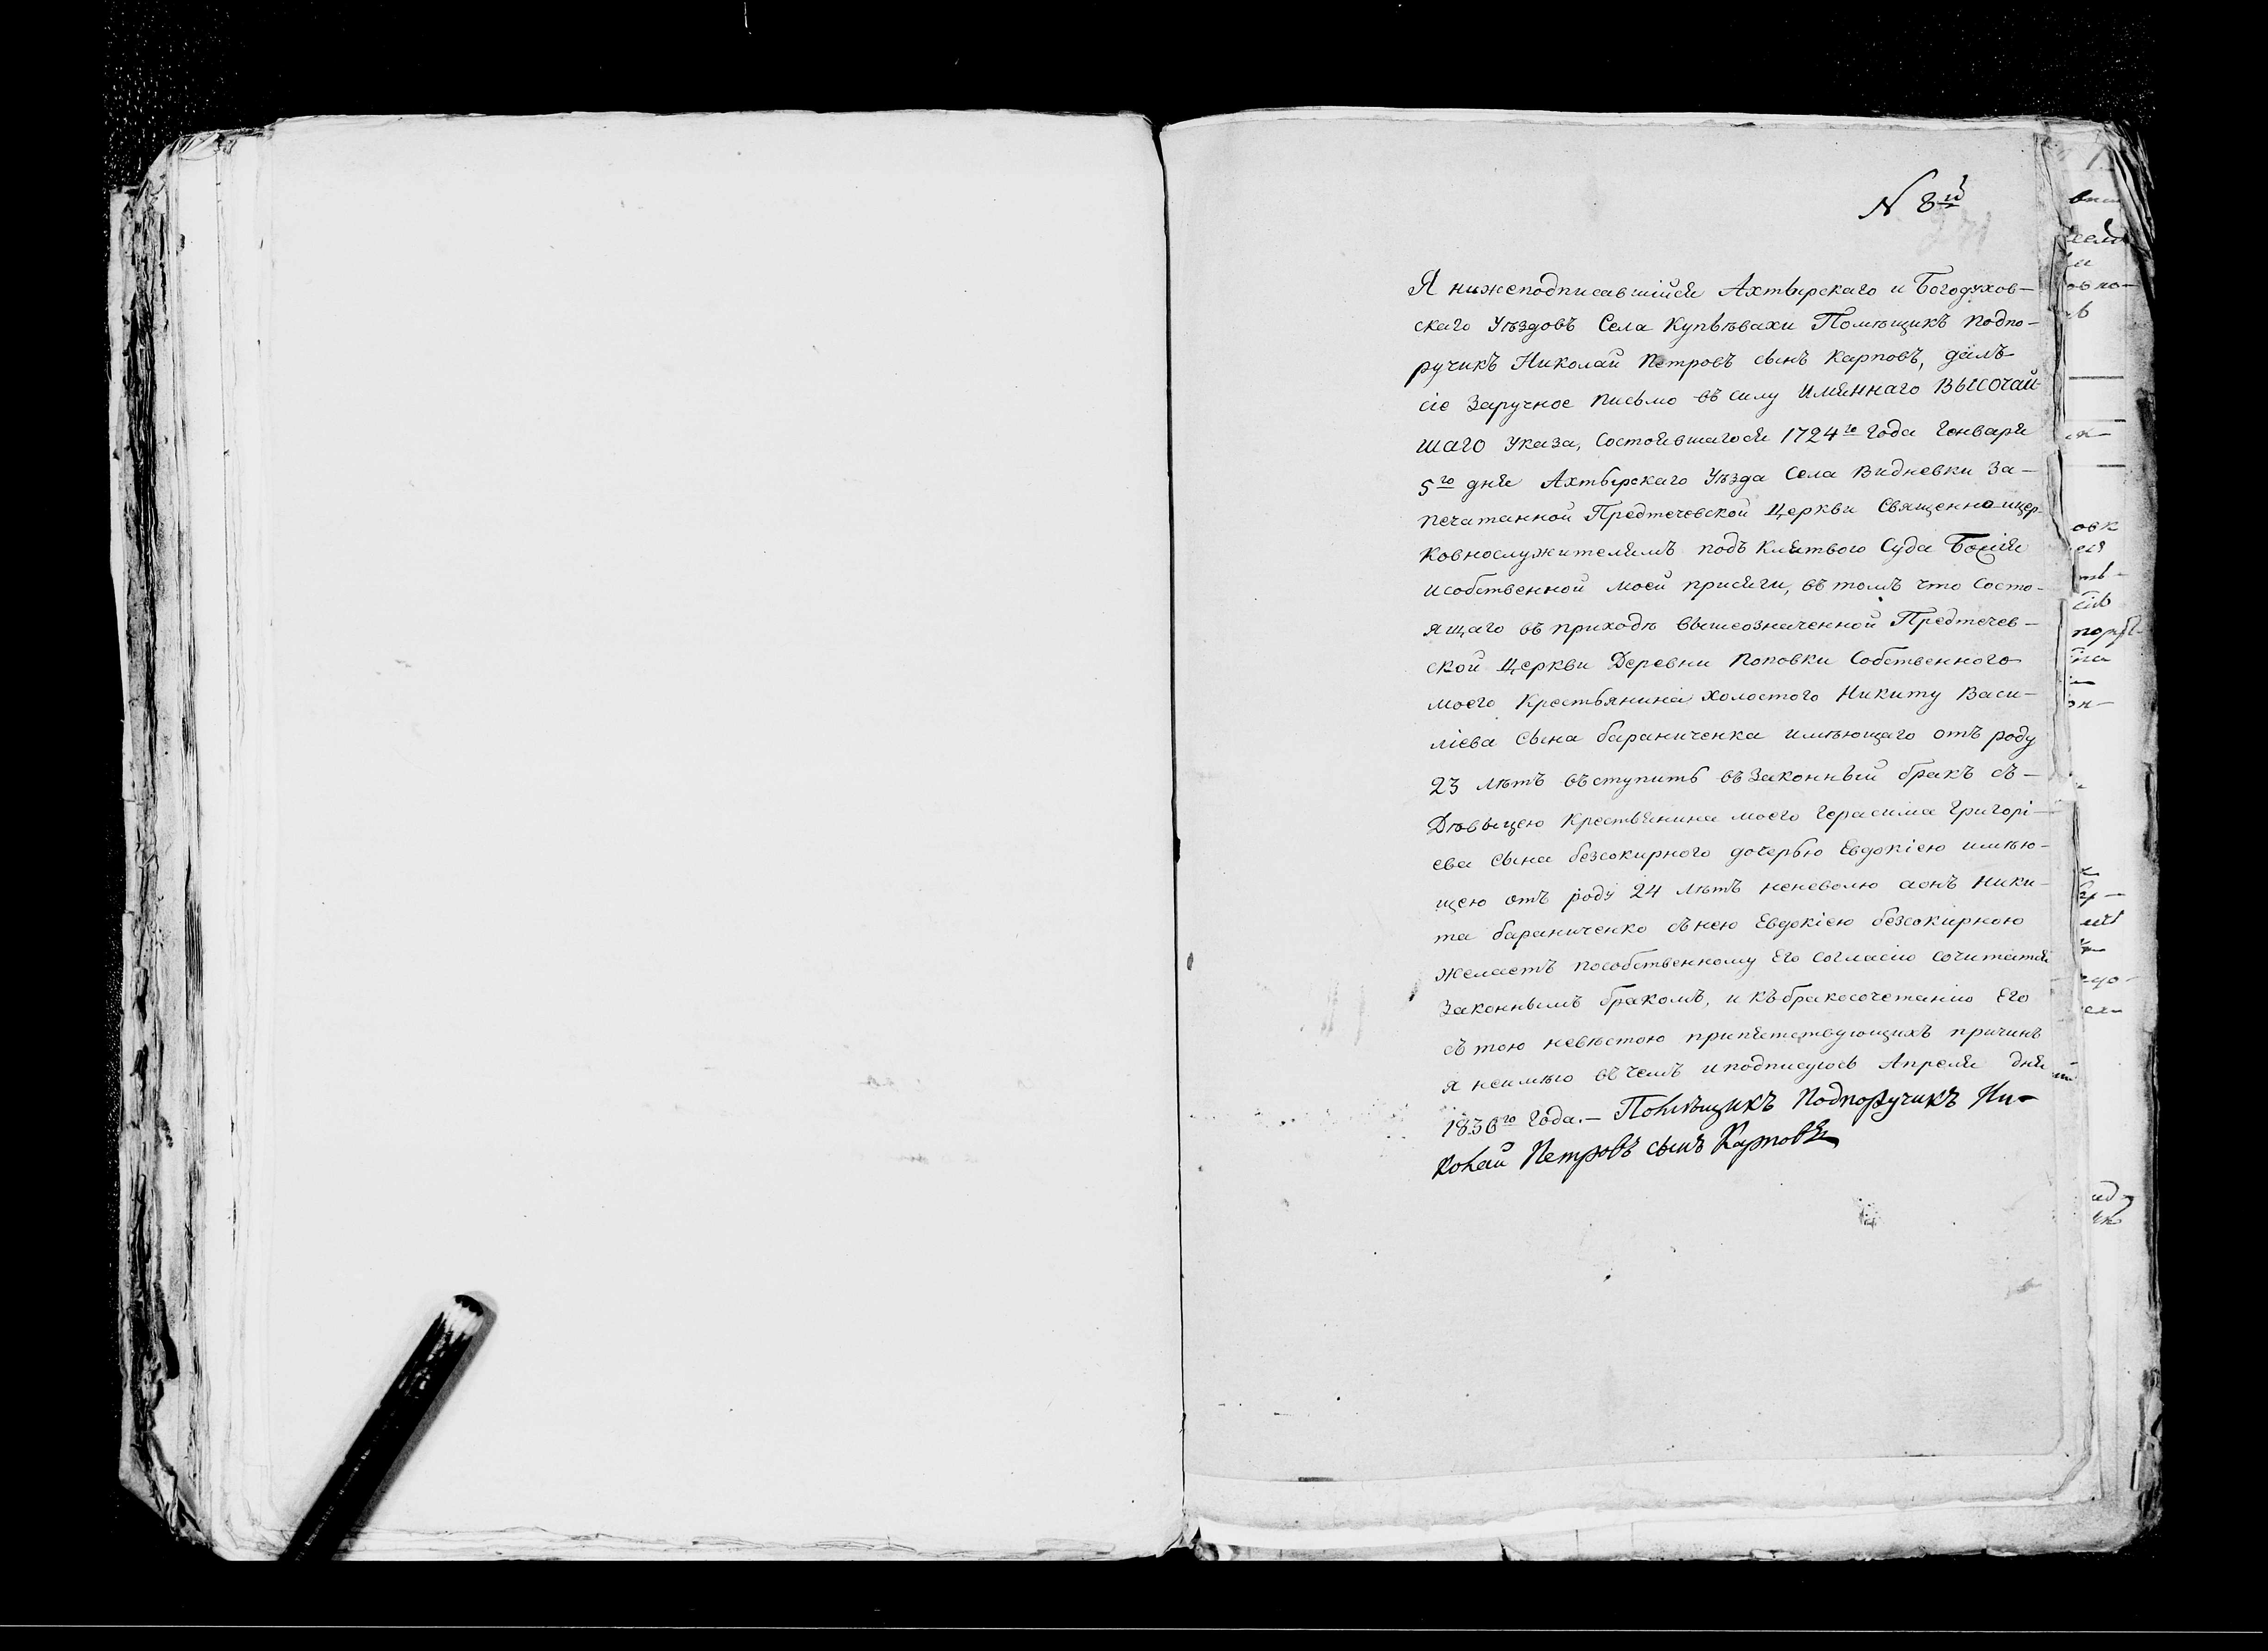 N 8й
Я нижеподписавшійся Ахтырскаго и Богодухов-
скаго Уѣздовъ Села Купьѣвахи Помѣщикъ Подпо-
ручикъ Николай Петровъ сынъ Карповъ, далъ
сіе Заручное письмо въ силу Имяннаго ВЫСОЧАЙ-
ШАГО Указа, Состоявшагося 1724го Года Генваря
5го дня Ахтырскаго Уѣзда Села Видневки За-
печатанной Предтечевской Церкви Священно-ицер-
ковнослужителямъ подъ Клятвою Суда Божія
исобственной моей присяги, въ томъ что Состо-
ящаго въ приходѣ вышеозначенной Предтечев-
ской Церкви Деревни Поповки Собственного
моего Крестьянина холостого Никиту Васи-
ліева Сына бараниченка имѣющаго отъ роду
23 лѣтъ въступить въ Законный бракъ съ-
Дѣвыцею Крестьянина моего Герасима Григорі-
ева Сына безсокирного дочерью Евдокіею имѣю-
щею отъ роду 24 лѣтъ неневолю аонъ Ники-
та бараниченко съ нею Евдокіею безсокирною
желаетъ пособственному Его согласію сочитатся
Законнымъ бракомъ, и къ бракосочетанію Его
съ тою невѣстою припятствующихъ причинъ
я неимѣю въ чемъ иподписуюсь Апреля дня
1836го Года.- Помѣщикъ Подпоручикъ Ни-
колай Петровъ сынъ Карповъ